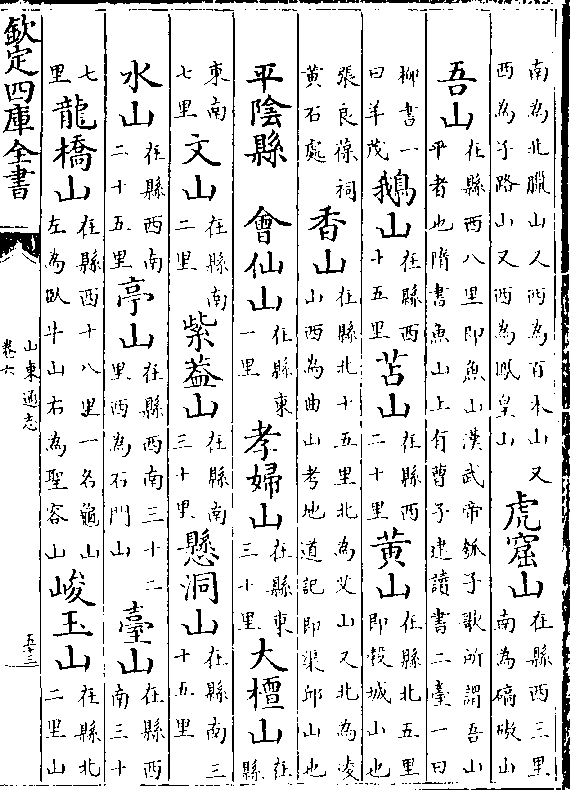 南為北臘山又西為百木山又西為子路山又西為鳳皇山 虎窟山 在縣西三里南為碻磝山
吾山 在縣西八里即魚山漢武帝瓠子歌所謂吾山平者也隋書魚山上有曹子建讀書二臺一曰
柳書一曰羊茂 鵝山 在縣西十五里 苫山 在縣西二十里 黃山 在縣北五里即穀城山也
張良葆祠黃石處 香山 在縣北十五里北為父山又北為凌山西為曲山考地道記即渠邱山也
平陰縣 會仙山 在縣東一里 孝婦山 在縣東三十里 大檀山 在縣
東南七里 文山 在縣南二里 紫葢山 在縣南三十里 懸洞山 在縣南三十五里
水山 在縣西南二十五里 亭山 在縣西南三十二里西為石門山 臺山 在縣西南三十
七里 龍橋山 在縣西十八里一名龜山左為臥牛山右為聖容山 峻玉山 在縣北二里山
欽定四庫全書
山東通志
卷六
五十三